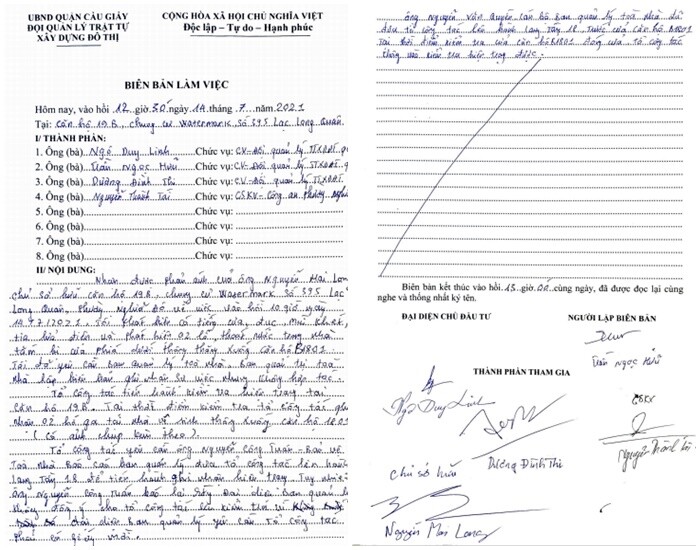 UBND QUẬN CẦU GIẤY
ĐỘI QUẢN LÝ TRẬT TỰ
XÂY DỰNG ĐÔ THỊ
CỘNG HÒA XÃ HỘI CHỦ NGHĨA VIỆT NAM
Độc lập – Tự do – Hạnh phúc
BIÊN BẢN LÀM VIỆC
Hôm nay, vào hồi 12 giờ 30 ngày 14 tháng 7 năm 2021
Tại: Căn hộ 19B, chung cư Watermark, Số 395 Lạc Long Quân
I/ THÀNH PHẦN:
1. Ông (bà) Ngô Duy Linh Chức vụ: CV-Đội quản lý TTXDĐT
2. Ông (bà) Trần Ngọc Hữu Chức vụ: CV-Đội quản lý TTXDĐT
3. Ông (bà) Dương Đình Thi Chức vụ: CV-Đội quản lý TTXDĐT
4. Ông (bà) Nguyễn Thành Tài Chức vụ: CSKV-Công an Phường
5. Ông (bà) Chức vụ:
6. Ông (bà) Chức vụ:
7. Ông (bà) Chức vụ:
8. Ông (bà) Chức vụ:
II/ NỘI DUNG:
Nhận được phản ánh của ông Nguyễn Hai Long
chủ sở hữu căn hộ 19B, chung cư Watermark số 395 Lạc
Long Quân, Phường Nghĩa Đô về việc vào hồi 10 giờ ngày
có tiếng cưa, đục
tia lửa điện và phát hiện 02 lỗ thoát nước trong nhà
tắm bị của phía dưới thông thẳng xuống căn hộ
Tôi đã yêu cầu ban quản lý toà nhà ban quản lý toà
nhà lập biên bản ghi nhận sự việc nhưng không hợp tác.
Tổ công tác tiến hành kiểm tra hiện trạng tại
Căn hộ 19B. Tại thời điểm kiểm tra tổ công tác ghi
nhận 02 hố ga tại nhà vệ sinh thông xuống căn hộ 18.01
( có ảnh chụp kèm theo )
Tổ công tác yêu cầu ông Nguyễn Công Tuấn Bảo vệ
Toà nhà Báo cáo ban quản lý đưa tổ công tác lên hành
lang Tầng 18 để tiến hành ghi nhận hiện trạng. Tuy nhiên
ông Nguyễn Công Tuấn báo lại rằng Đại diện ban quản lý
không đồng ý cho tổ công tác lên kiểm tra vì
đại diện ban quản lý yêu cầu tổ công tác
phải có giấy mời.
Ông Nguyễn Văn Quyền cán bộ ban quản lý toà nhà đã
đưa tổ công tác lên hành lang tầng 18, trước cửa căn hộ
Tại thời điểm kiểm tra cửa căn hộ đóng cửa tổ công tác
không vào kiểm tra hiện trạng được.
Biên bản kết thúc vào hồi 15 giờ 00 cùng ngày, đã được đọc lại cùng
nghe và thống nhất ký tên.
ĐẠI DIỆN CHỦ ĐẦU TƯ
NGƯỜI LẬP BIÊN BẢN
Trần Ngọc Hữu
THÀNH PHẦN THAM GIA
Ngô Duy Linh
CSKV
Chủ sở hữu
Dương Đình Thi
Nguyễn Thành Tài
Nguyễn Hai Long